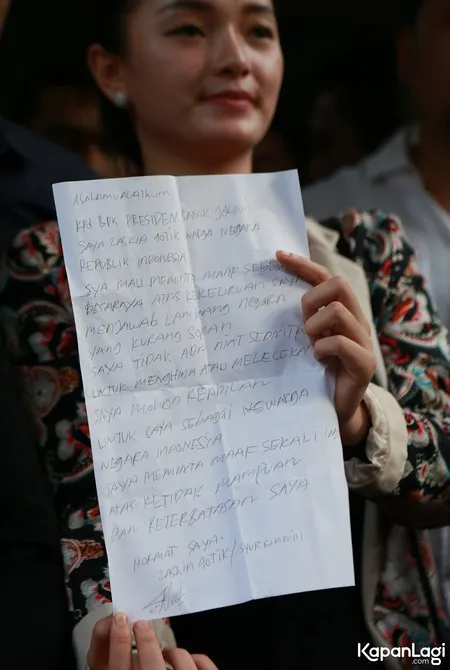 ASALAMUALAIKUM
KPD BPK PRESIDEN BAPAK JOKOWI
SAYA ZASKIA GOTIK WARGA NEGARA
REPUBLIK INDONESIA
SYA MAU MEMINTA MAAF SEBESAR
BESARNYA ATAS KEKELIRUAN SAYA
MENJAWAB LAMBANG NEGARA
YANG KURANG SOPAN
SAYA TIDAK ADA NIAT SEDIKITPUN
UNTUK MENGHINA ATAU MELECEKAN
SAYA MOHON KEADILAN
UNTUK SAYA SEBAGAI WARGA
NEGARA INDONESIA
SAYA MEMINTA MAAF SEKALI LAGI
ATAS KETIDAK MAMPUAN
DAN KETERBATASAN SAYA
HORMAT SAYA
ZASKIA GOTIK/SURKIANIH
KapanLagi
.com